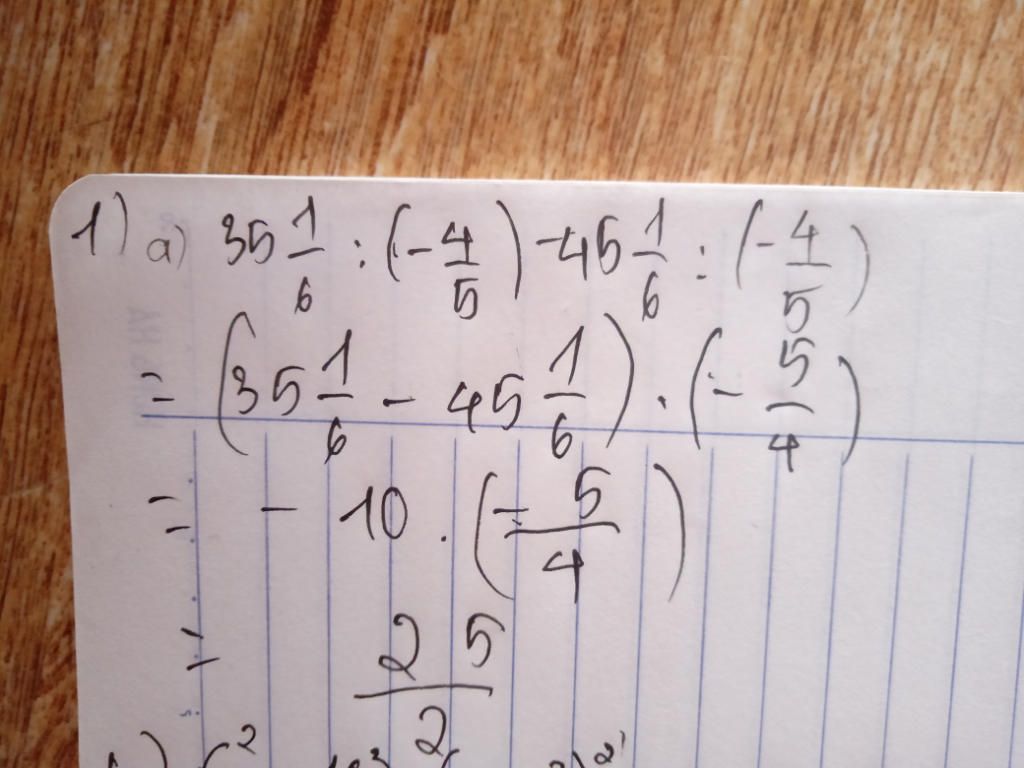 1) a) 35 1/6 : (-4/5) - 45 1/6 : (-4/5)
= (35 1/6 - 45 1/6) . (-5/4)
= - 10 . (-5/4)
= 25/2